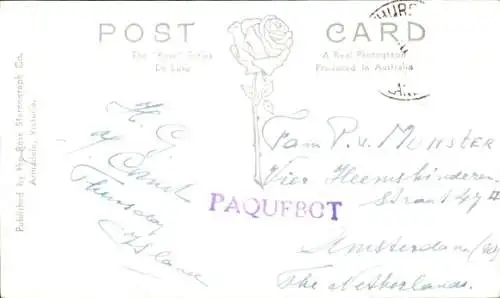 POST CARD
The "Rose" Series
De Luxe
A Real Photograph
Produced in Australia
Published by the Rose Stereograph Co.
Armadale, Victoria.
of
Thursday
Island
PAQUEBOT
Fam P. v. Munster
Vier Heemskinderen-
straat 47 II
Amsterdam
The Netherlands.